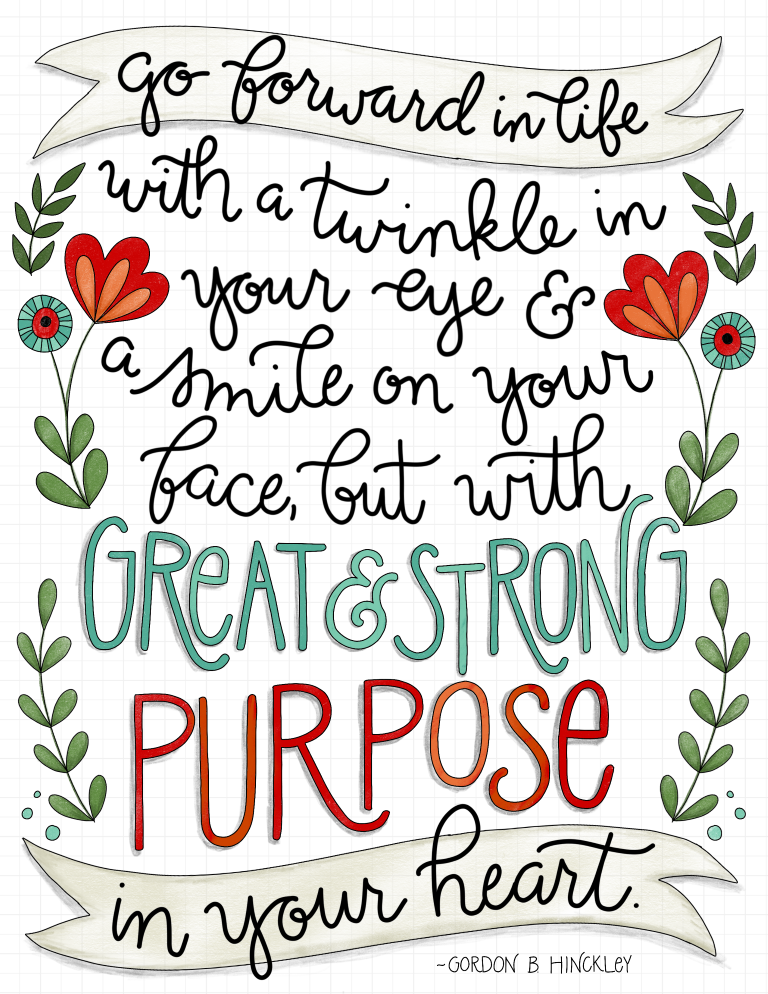 go forward in life
with a twinkle in
your eye &
a smile on your
face, but with
GReAT & STRONG
PURPOSe
in your heart.
~GORDON B HINCKLEY